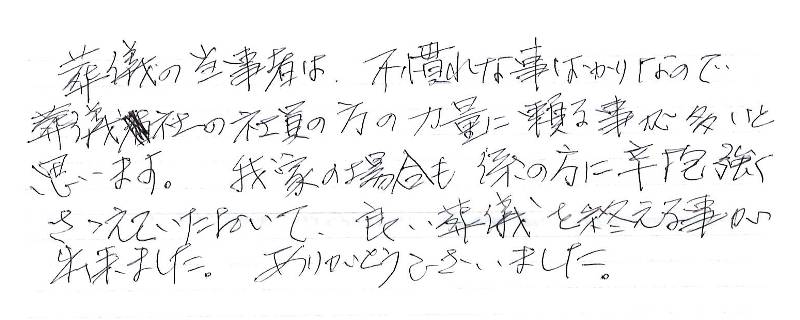 葬儀の当事者は、不慣れな事ばかりなので
葬儀社の社員の方の力量に頼る事が多いと
思います。 我家の場合も係の方に辛抱強く
ささえていただいて、良い葬儀を終える事が
出来ました。 ありがとうございました。